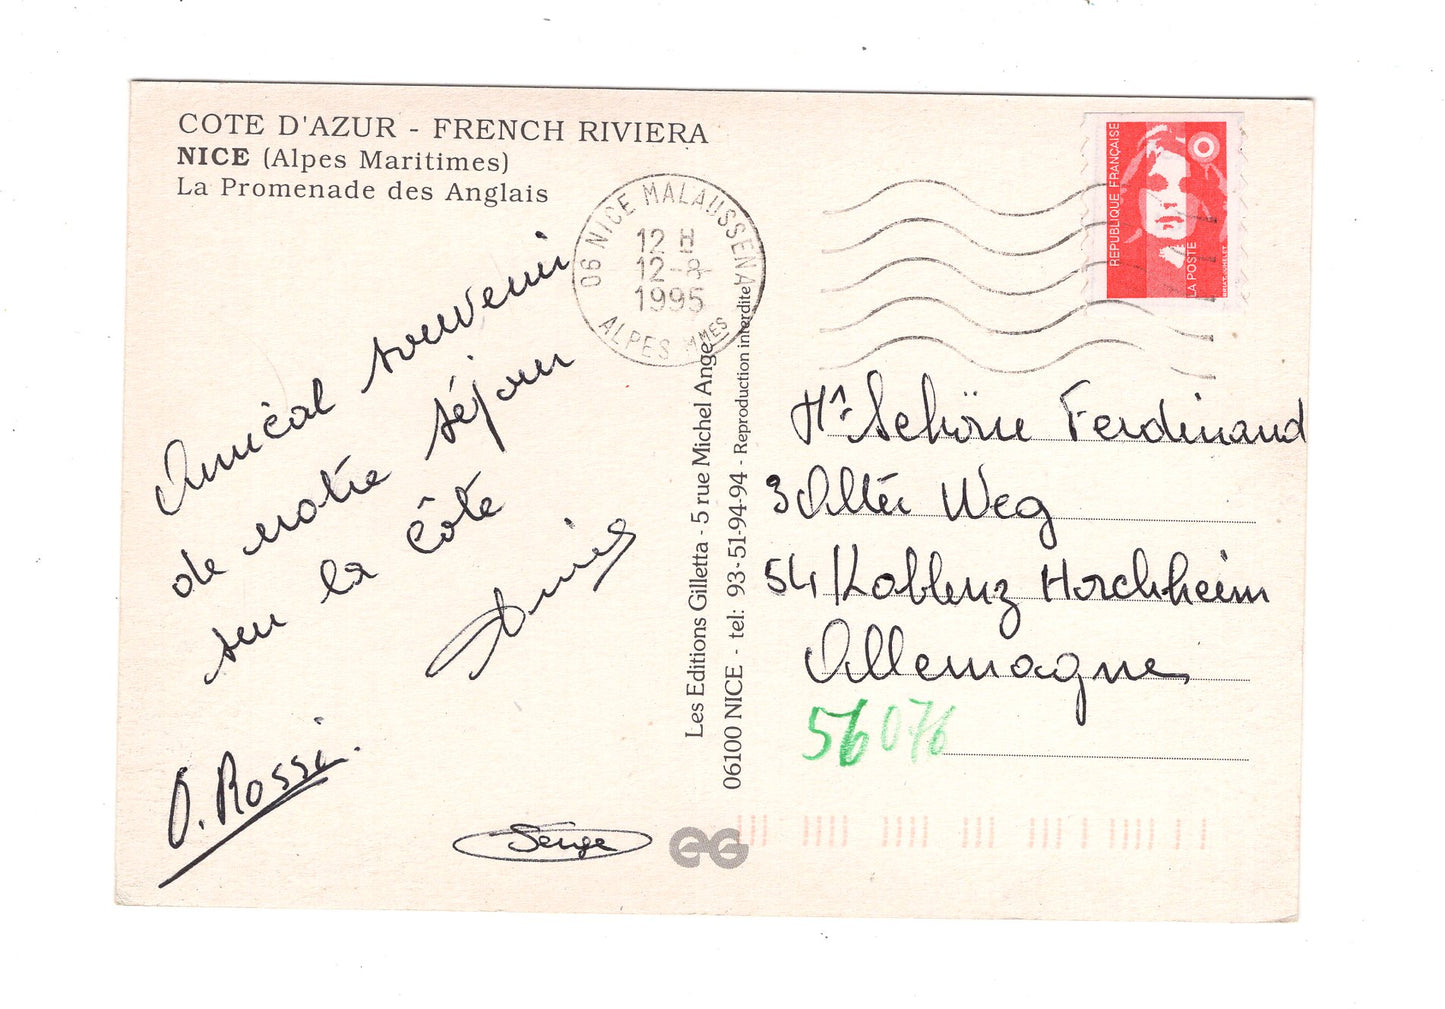 COTE D'AZUR - FRENCH RIVIERA
NICE (Alpes Maritimes)
La Promenade des Anglais
06 NICE MALAUSSENA
12 H
12-8-
1995
ALPES MMES
REPUBLIQUE FRANÇAISE
LA POSTE
Amical souvenir
de notre séjour
sur la Côte
O. Rossi.
Serge
Les Editions Gilletta - 5 rue Michel Ange
06100 NICE - tel: 93-51-94-94 - Reproduction interdite
Hr. Schöne Ferdinand
3 Alter Weg
54 Koblenz Horchheim
Allemagne
56076